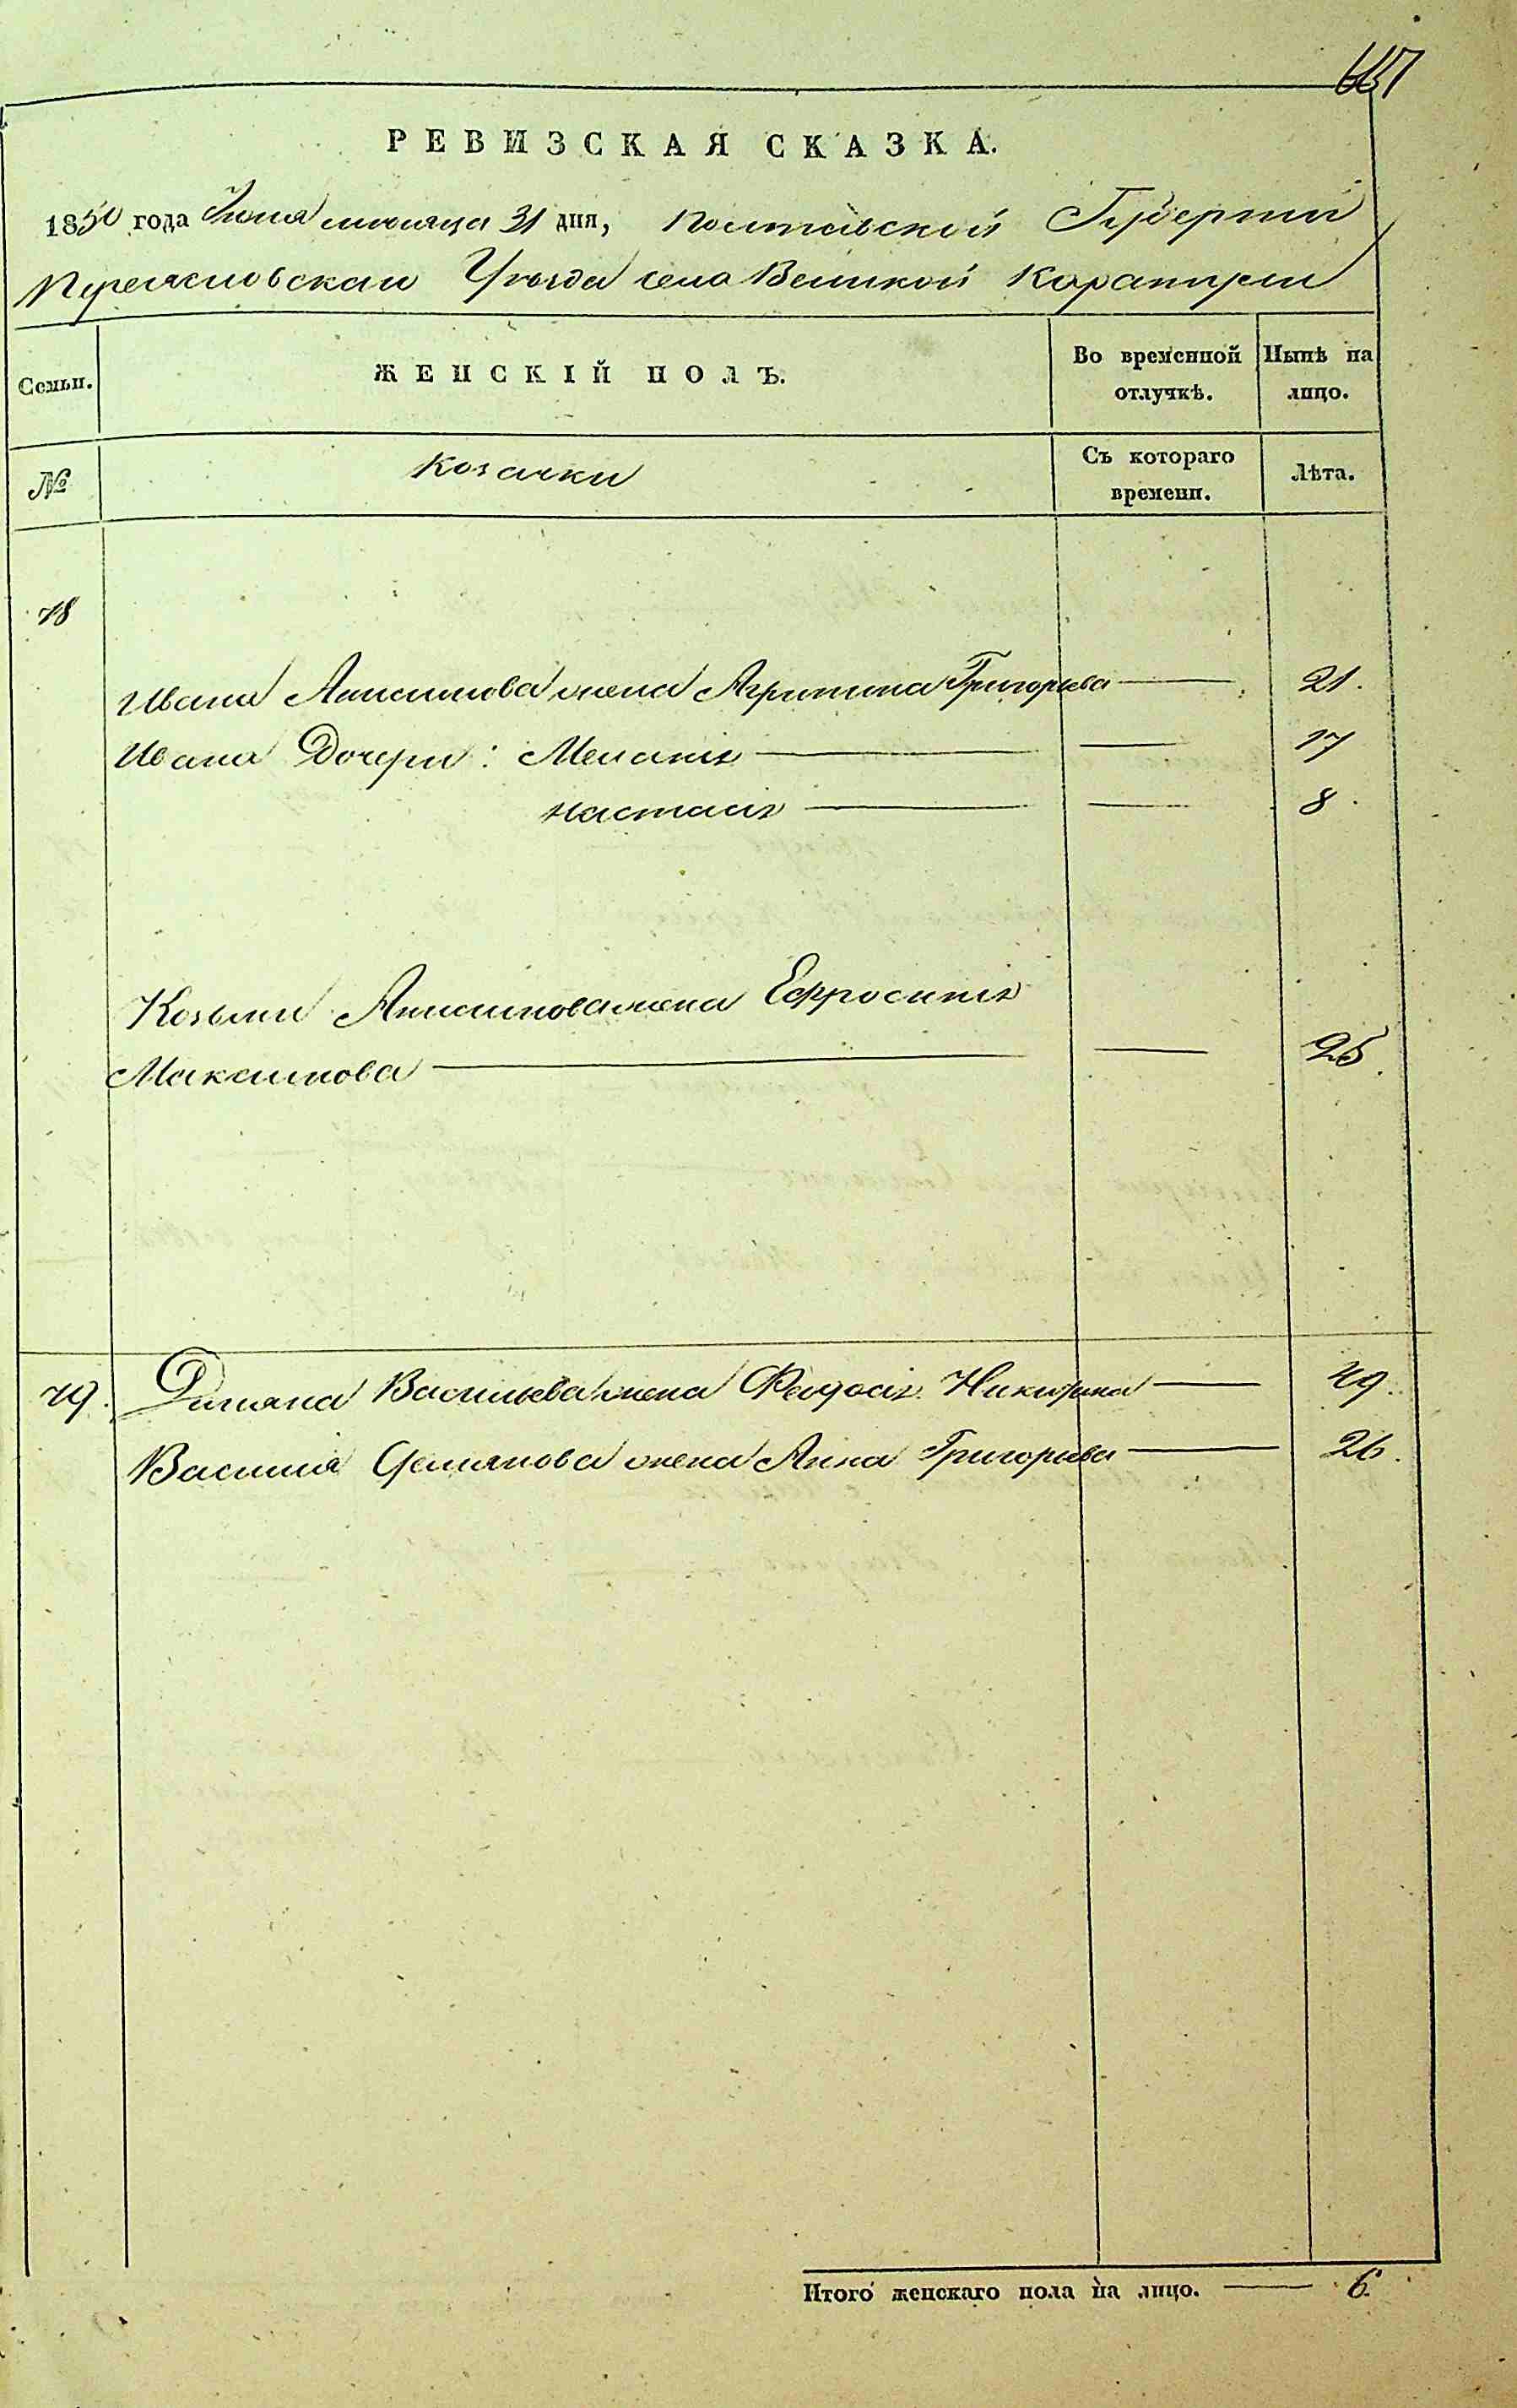 667
РЕВИЗСКАЯ СКАЗКА.
1850 года Июля месяца 31 дня, Полтавской Губернии
Переясловскаго Уѣзда села Великой Каратули
Семьи.
ЖЕНСКІЙ ПОЛЪ.
Во временной отлучкѣ.
Нынѣ на лицо.
№
Козачки
Съ котораго времени.
Лѣта.
78
Ивана Анисимова жена Агрипина Григорьева — 21.
Ивана Дочери: Меланія — — 17
Настасія — — 8
Козьми Анисимова жена Ефросинія
Максимова — — 25.
79. Димяна Васильева жена Феодосія Никитина — 49.
Василія Демянова жена Анна Григорьева — 26.
Итого женскаго пола на лицо. — 6.